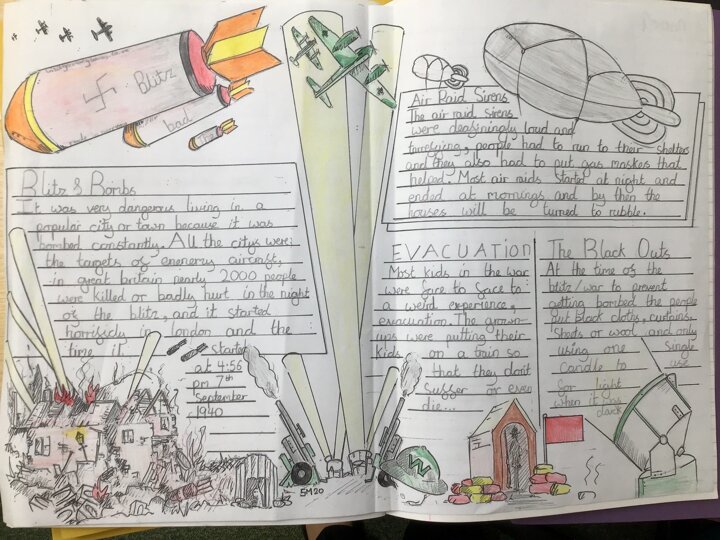 Blitz
bad
Blitz & Bombs
It was very dangerous living in a
popular city or town because it was
bombed constantly. All the citys were
the targets of enenerys aircraft,
in great britain nearly 2000 people
were killed or badly hurt in the night
of the blitz, and it started
horrifícly in london and the
time it
started
at 4:56
pm 7th
september
1940
5M20
Air Raid Sirens
The air raid sirens
were deafiningly loud and
terrefying, people had to run to their shelters
and they also had to put gas maskes that
helped. Most air raids started at night and
ended at mornings and by then the
houses will be turned to rubble.
EVACUATION
Most kids in the war
were face to face to
a weird experience,
evacuation. The grown-
ups were putting their
kids on a train so
that they don't
suffer or even
die...
W
The Black Outs
At the time of the
blitz/war to prevent
getting bombed the people
put black cloths, curtains,
sheets or wool and only
using one single
candle to use
for light
when it was
dark